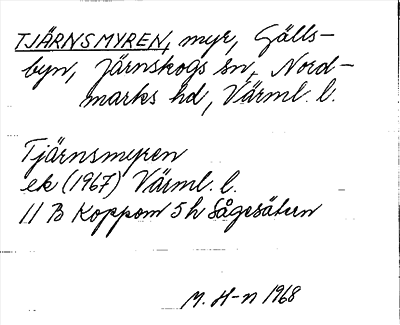 TJÄRNSMYREN, myr, Gälls-
byn, Järnskogs sn, Nord-
marks hd, Värml. l.
Tjärnsmyren
ek (1967) Värml. l.
11 B Koppom 5 h Sågesätern
M. H-n 1968